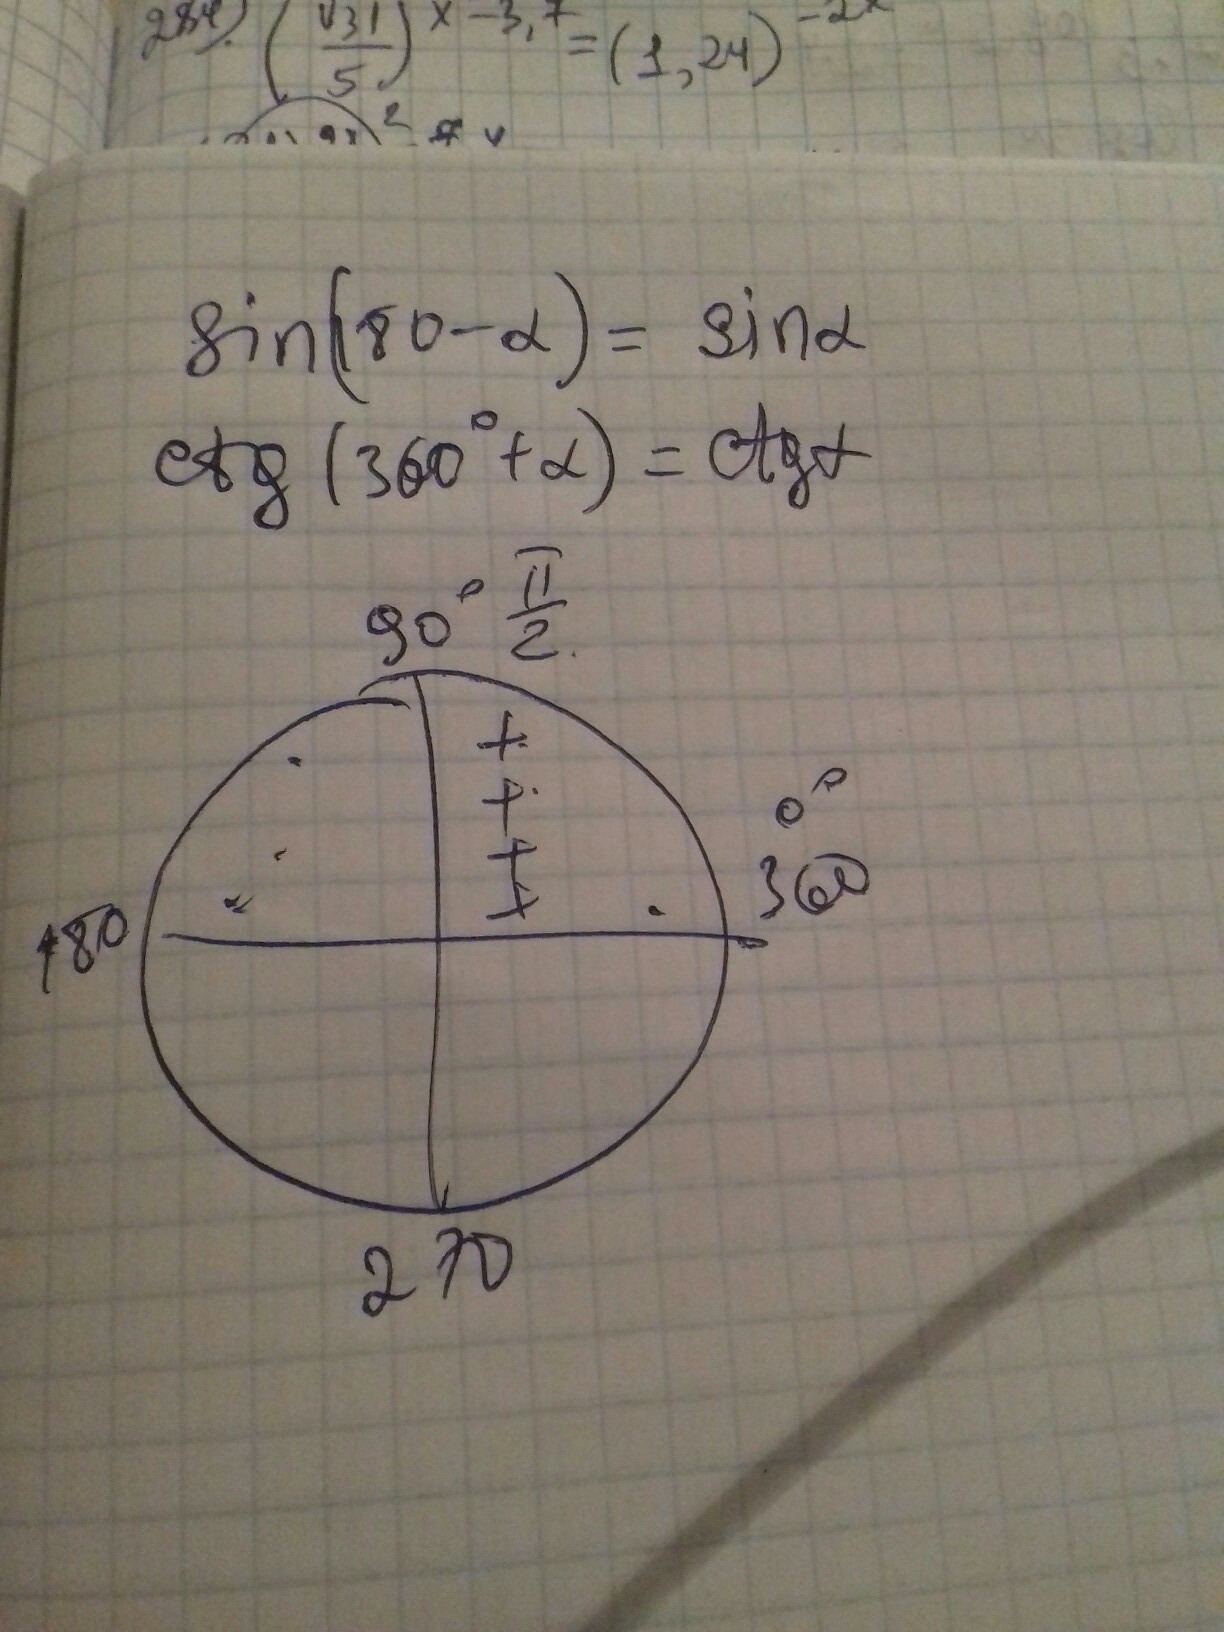 284) (√31/5)^x-3,7 = (1,24)^-2x
sin(180-α) = sinα
ctg (360°+α) = ctgα
90° π/2
+
+
+
+
0°
360
180
270